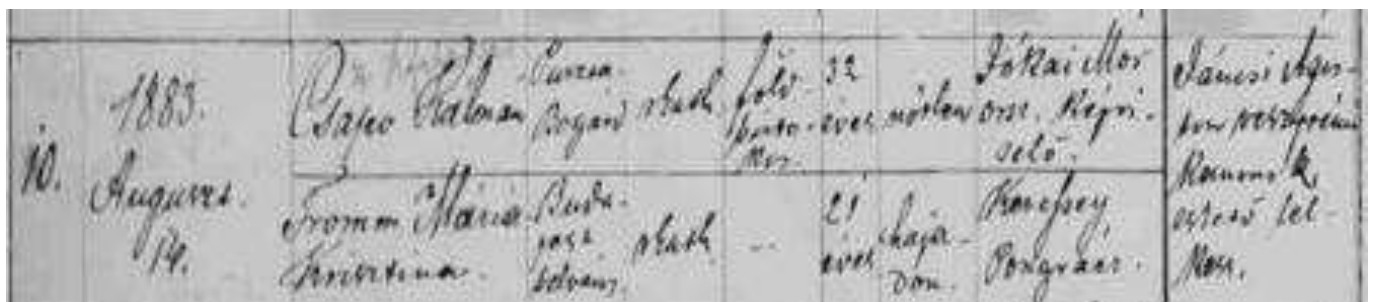 10.
1883.
Auguszt.
14.
Csapo Kálmán
Puszta-
Bogárd
rkath
föld
birto-
kos.
32
éves
nőtlen
Jókai Mór
orsz. Képvi-
selő.
Jánosi Ágos-
ton veszprémi
Kanonok,
esperes lel-
kész.
Fromm Mária
Krisztina.
Buda-
pest
rkath
21
éves
haja-
don.
Pongrácz.